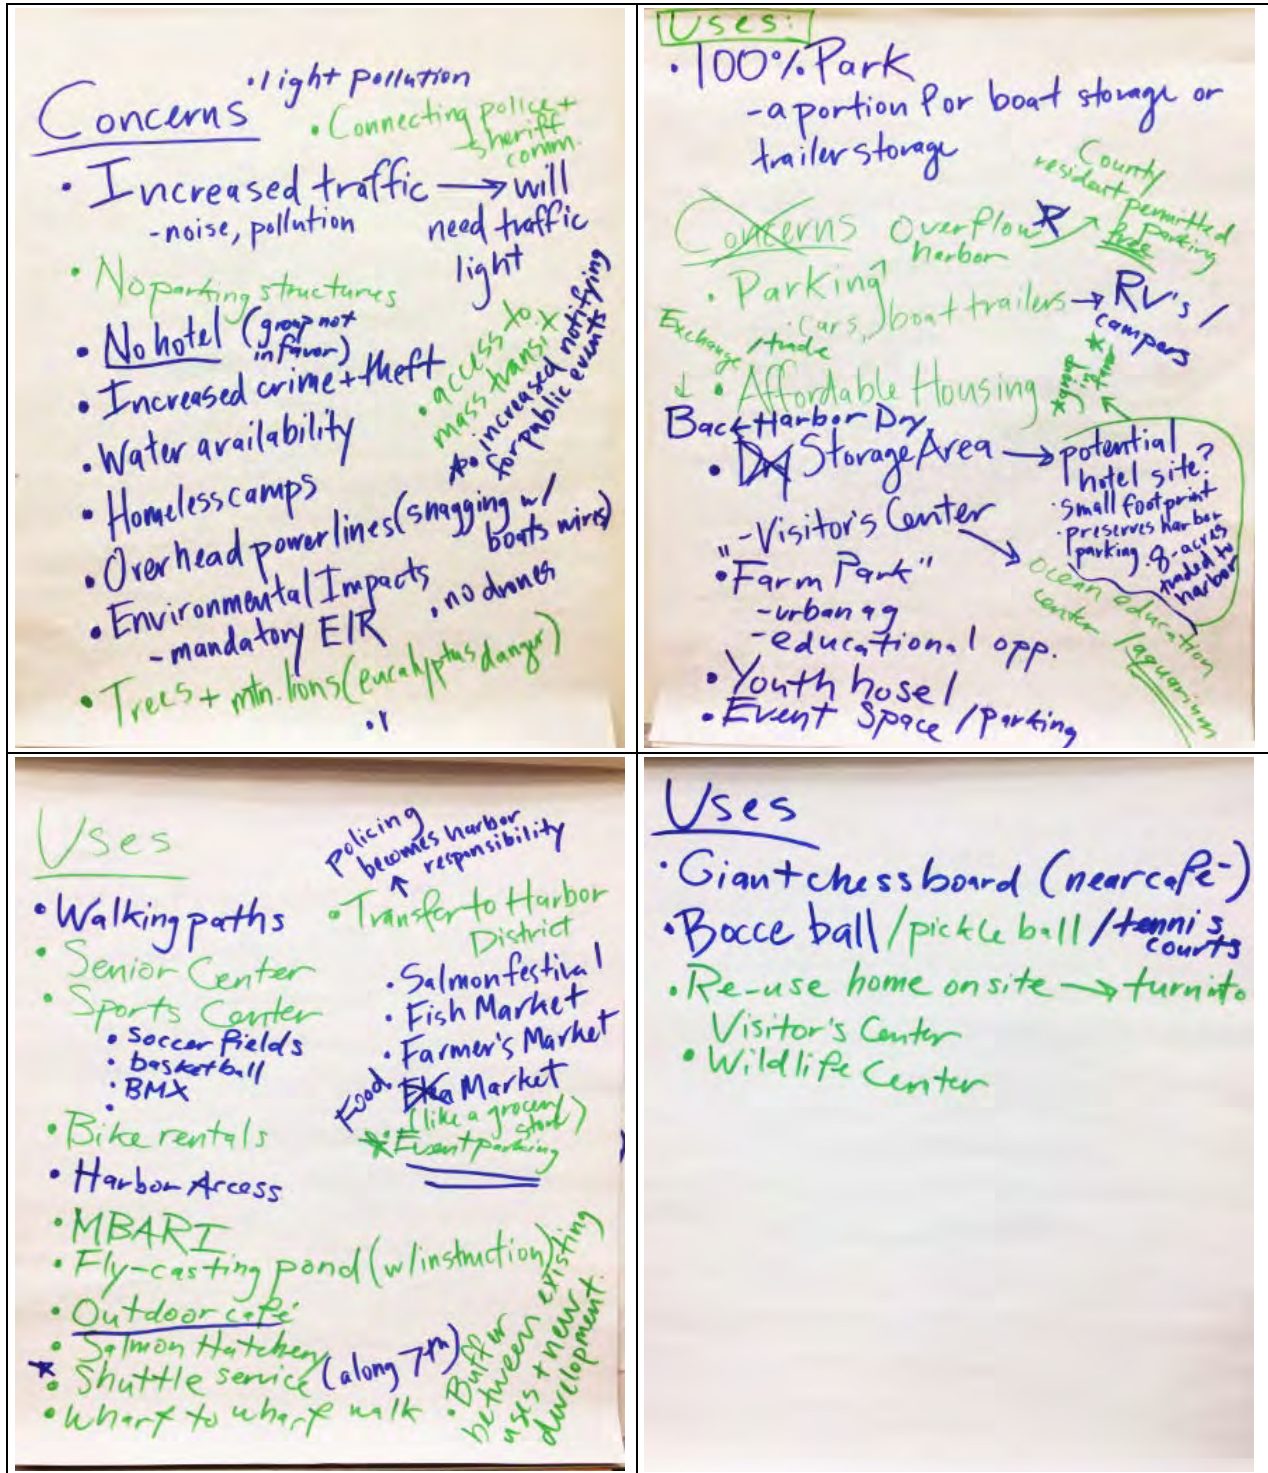 Concerns
• light pollution
• Connecting police +
sheriff
comm.
• Increased traffic → will
need traffic
light
- noise, pollution
• No parking structures
• No hotel (group not
in favor)
• Increased crime + theft
• access to
mass transit
• increased notifying
for public events
• Water availability
• Homeless camps
• Overhead powerlines (snagging w/
boats wires)
• Environmental Impacts
- mandatory EIR
• no drones
• Trees + mtn. lions (eucalyptus danger)
Uses:
• 100% Park
- a portion for boat storage or
trailer storage
Concerns
Overflow
harbor
County
resident permitted
parking
free
• Parking
cars, boat trailers → RV's /
campers
Exchange / trade
• Affordable Housing
Back Harbor Dry
• Dry Storage Area → potential
hotel site?
• small footprint
• preserves harbor
parking. 8-acres
traded to
harbor
- Visitor's Center
ocean education
center / aquarium
• "Farm Park"
- urban ag
- educational opp.
• Youth hosel
• Event Space / Parking
Uses
• Walking paths
• Senior Center
• Sports Center
• Soccer fields
• basketball
• BMX
• Bike rentals
• Harbor Access
• MBARI
• Fly-casting pond (w/instruction)
• Outdoor café
• Salmon Hatchery
• Shuttle service (along 7th)
• Wharf to wharf walk
policing
becomes harbor
responsibility
• Transfer to Harbor
District
• Salmon festival
• Fish Market
• Farmer's Market
• Food Market
(like a grocery
store)
• Event parking
• Buffer
between existing
uses + new
development.
Uses
• Giant chess board (near café)
• Bocce ball / pickle ball / tennis
courts
• Re-use home on site → turn into
Visitor's Center
• Wildlife Center